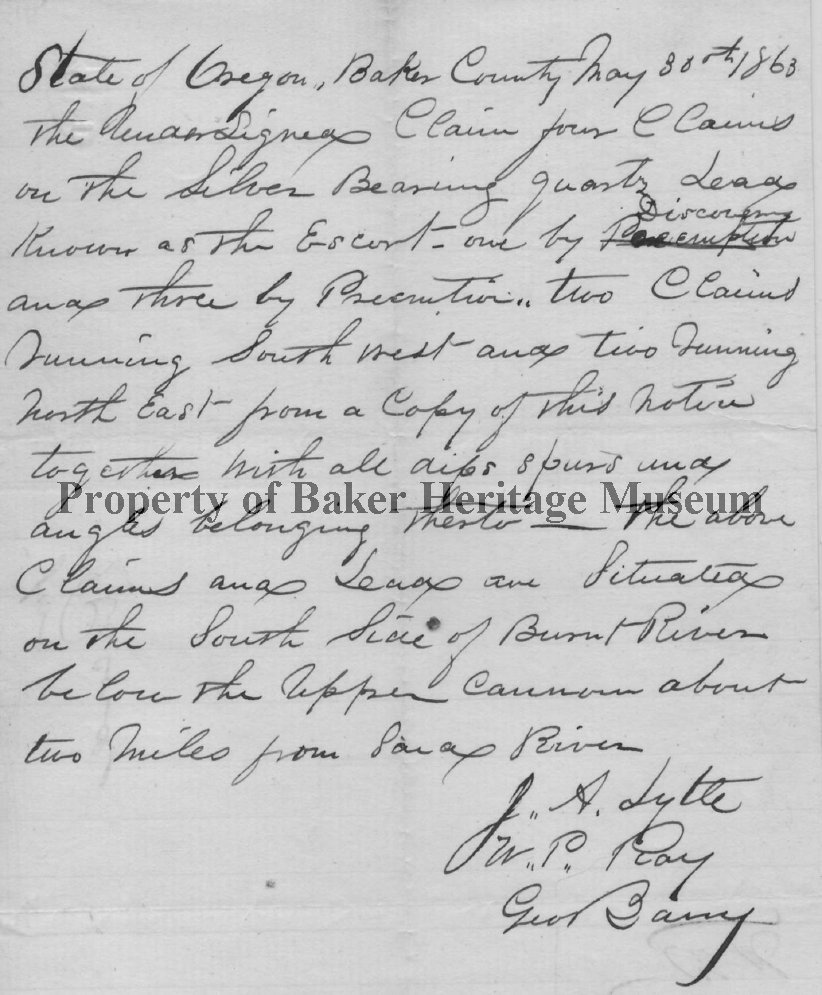 State of Oregon, Baker County May 30th 1863
the Undersigned Claim four Claims
on the Silver Bearing quartz Lead
Discovery
Known as the Escort - one by Preemption
and three by Preemtion,, two Claims
running South West and two running
North East from a Copy of this Notice
together with all dips spurs and
Property of Baker Heritage Museum
angles belonging therto — The above
Claims and Lead are Situated
on the South Side of Burnt River
below the Upper Cannon about
two Miles from Said River
J,, A. Lytle
W,, P,, Ray
Geo Barry